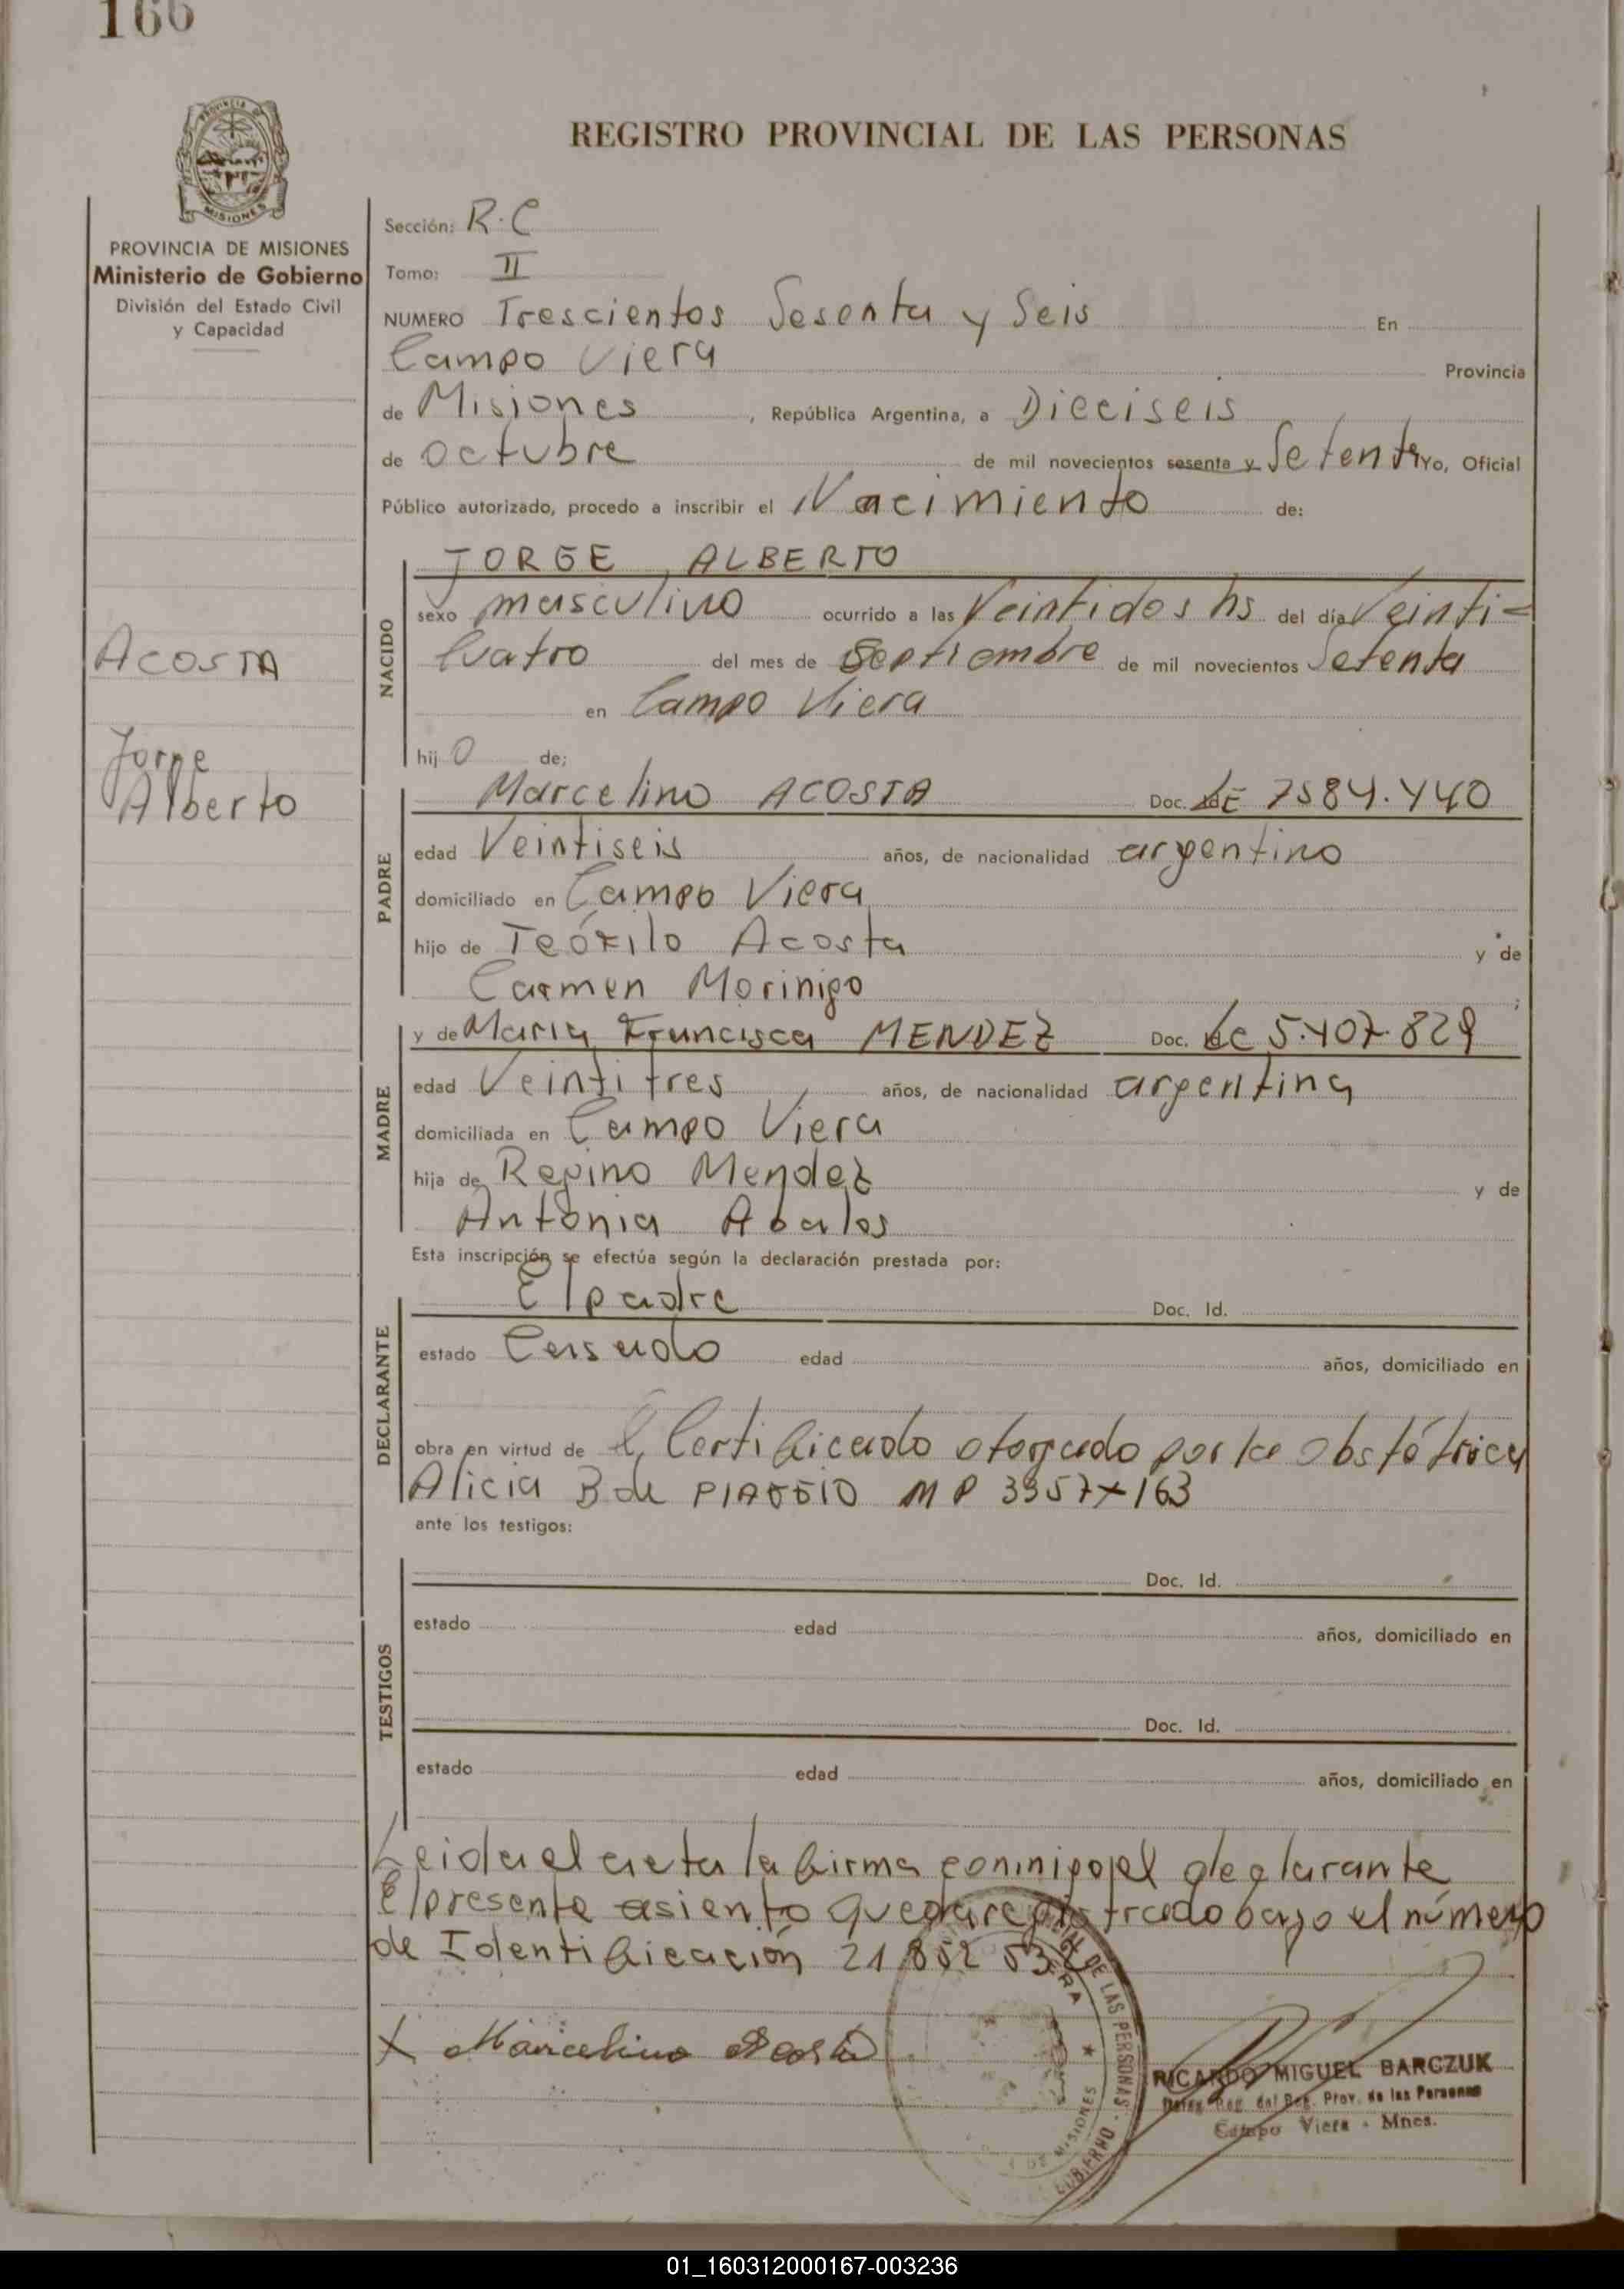 166
REGISTRO PROVINCIAL DE LAS PERSONAS
PROVINCIA DE
MISIONES
PROVINCIA DE MISIONES
Ministerio de Gobierno
División del Estado Civil
y Capacidad
Sección: R.C
Tomo: II
NUMERO Trescientos Sesenta y Seis En
Campo Viera Provincia
de Misiones, República Argentina, a Dieciseis
de octubre de mil novecientos sesenta y Setenta Yo, Oficial
Público autorizado, procedo a inscribir el Nacimiento de:
NACIDO
JORGE ALBERTO
sexo masculino ocurrido a las Veintidos hs del día Veinti-
Cuatro del mes de Septiembre de mil novecientos Setenta
en Campo Viera
hijo de;
ACOSTA
Jorge
Alberto
PADRE
Marcelino ACOSTA Doc. LE 7584.440
edad Veintiseis años, de nacionalidad argentino
domiciliado en Campo Viera
hijo de Teófilo Acosta y de
Carmen Morinigo ;
MADRE
y de Maria Francisca MENDEZ Doc. LC 5.407.829
edad Veintitres años, de nacionalidad argentina
domiciliada en Campo Viera
hija de Regino Mendez y de
Antonia Abalos
Esta inscripción se efectúa según la declaración prestada por:
DECLARANTE
El padre Doc. Id.
estado Casado edad años, domiciliado en
obra en virtud de el Certificado otorgado por la Obstétrica
Alicia B de MP 3957+163
ante los testigos:
TESTIGOS
Doc. Id.
estado edad años, domiciliado en
Doc. Id.
estado edad años, domiciliado en
Leida el acta la firma conmigo el declarante
El presente asiento queda registrado bajo el número
de Identificación 21 852 532
X Marcelino Acosta
DE LAS PERSONAS
GOBIERNO
MISIONES
RICARDO MIGUEL BARCZUK
Reg. del Reg. Prov. de las Personas
Campo Viera - Mnes.
01_160312000167-003236